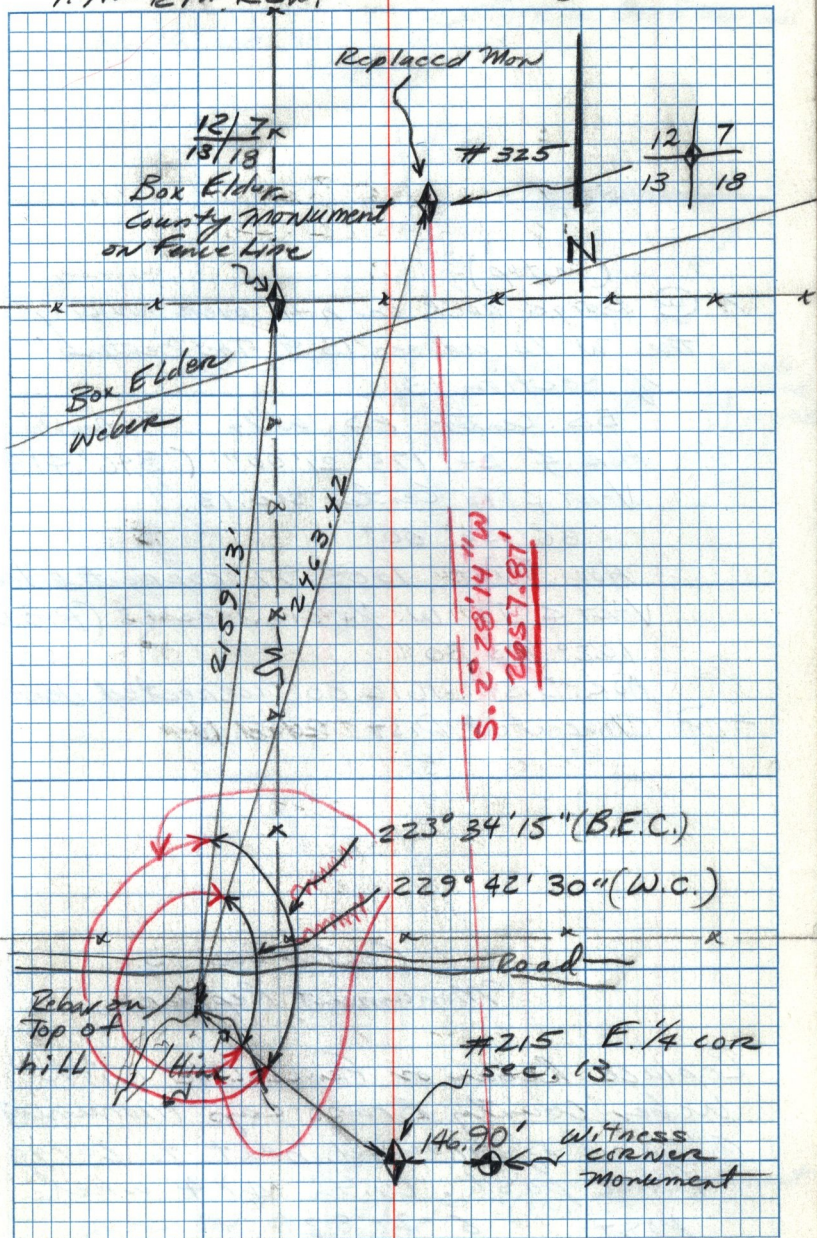 Replaced Mon
12/7
13/18
Box Elder
County Monument
on Fence Line
#325
12 7
13 18
N
Box Elder
Weber
2159.13'
2463.42
S. 2° 28' 14" W
2657.87'
223° 34' 15" (B.E.C.)
229° 42' 30" (W.C.)
Road
Rebar on
Top of
hill
#215 E. 1/4 cor
sec. 13
146.90'
Witness
CORNER
Monument